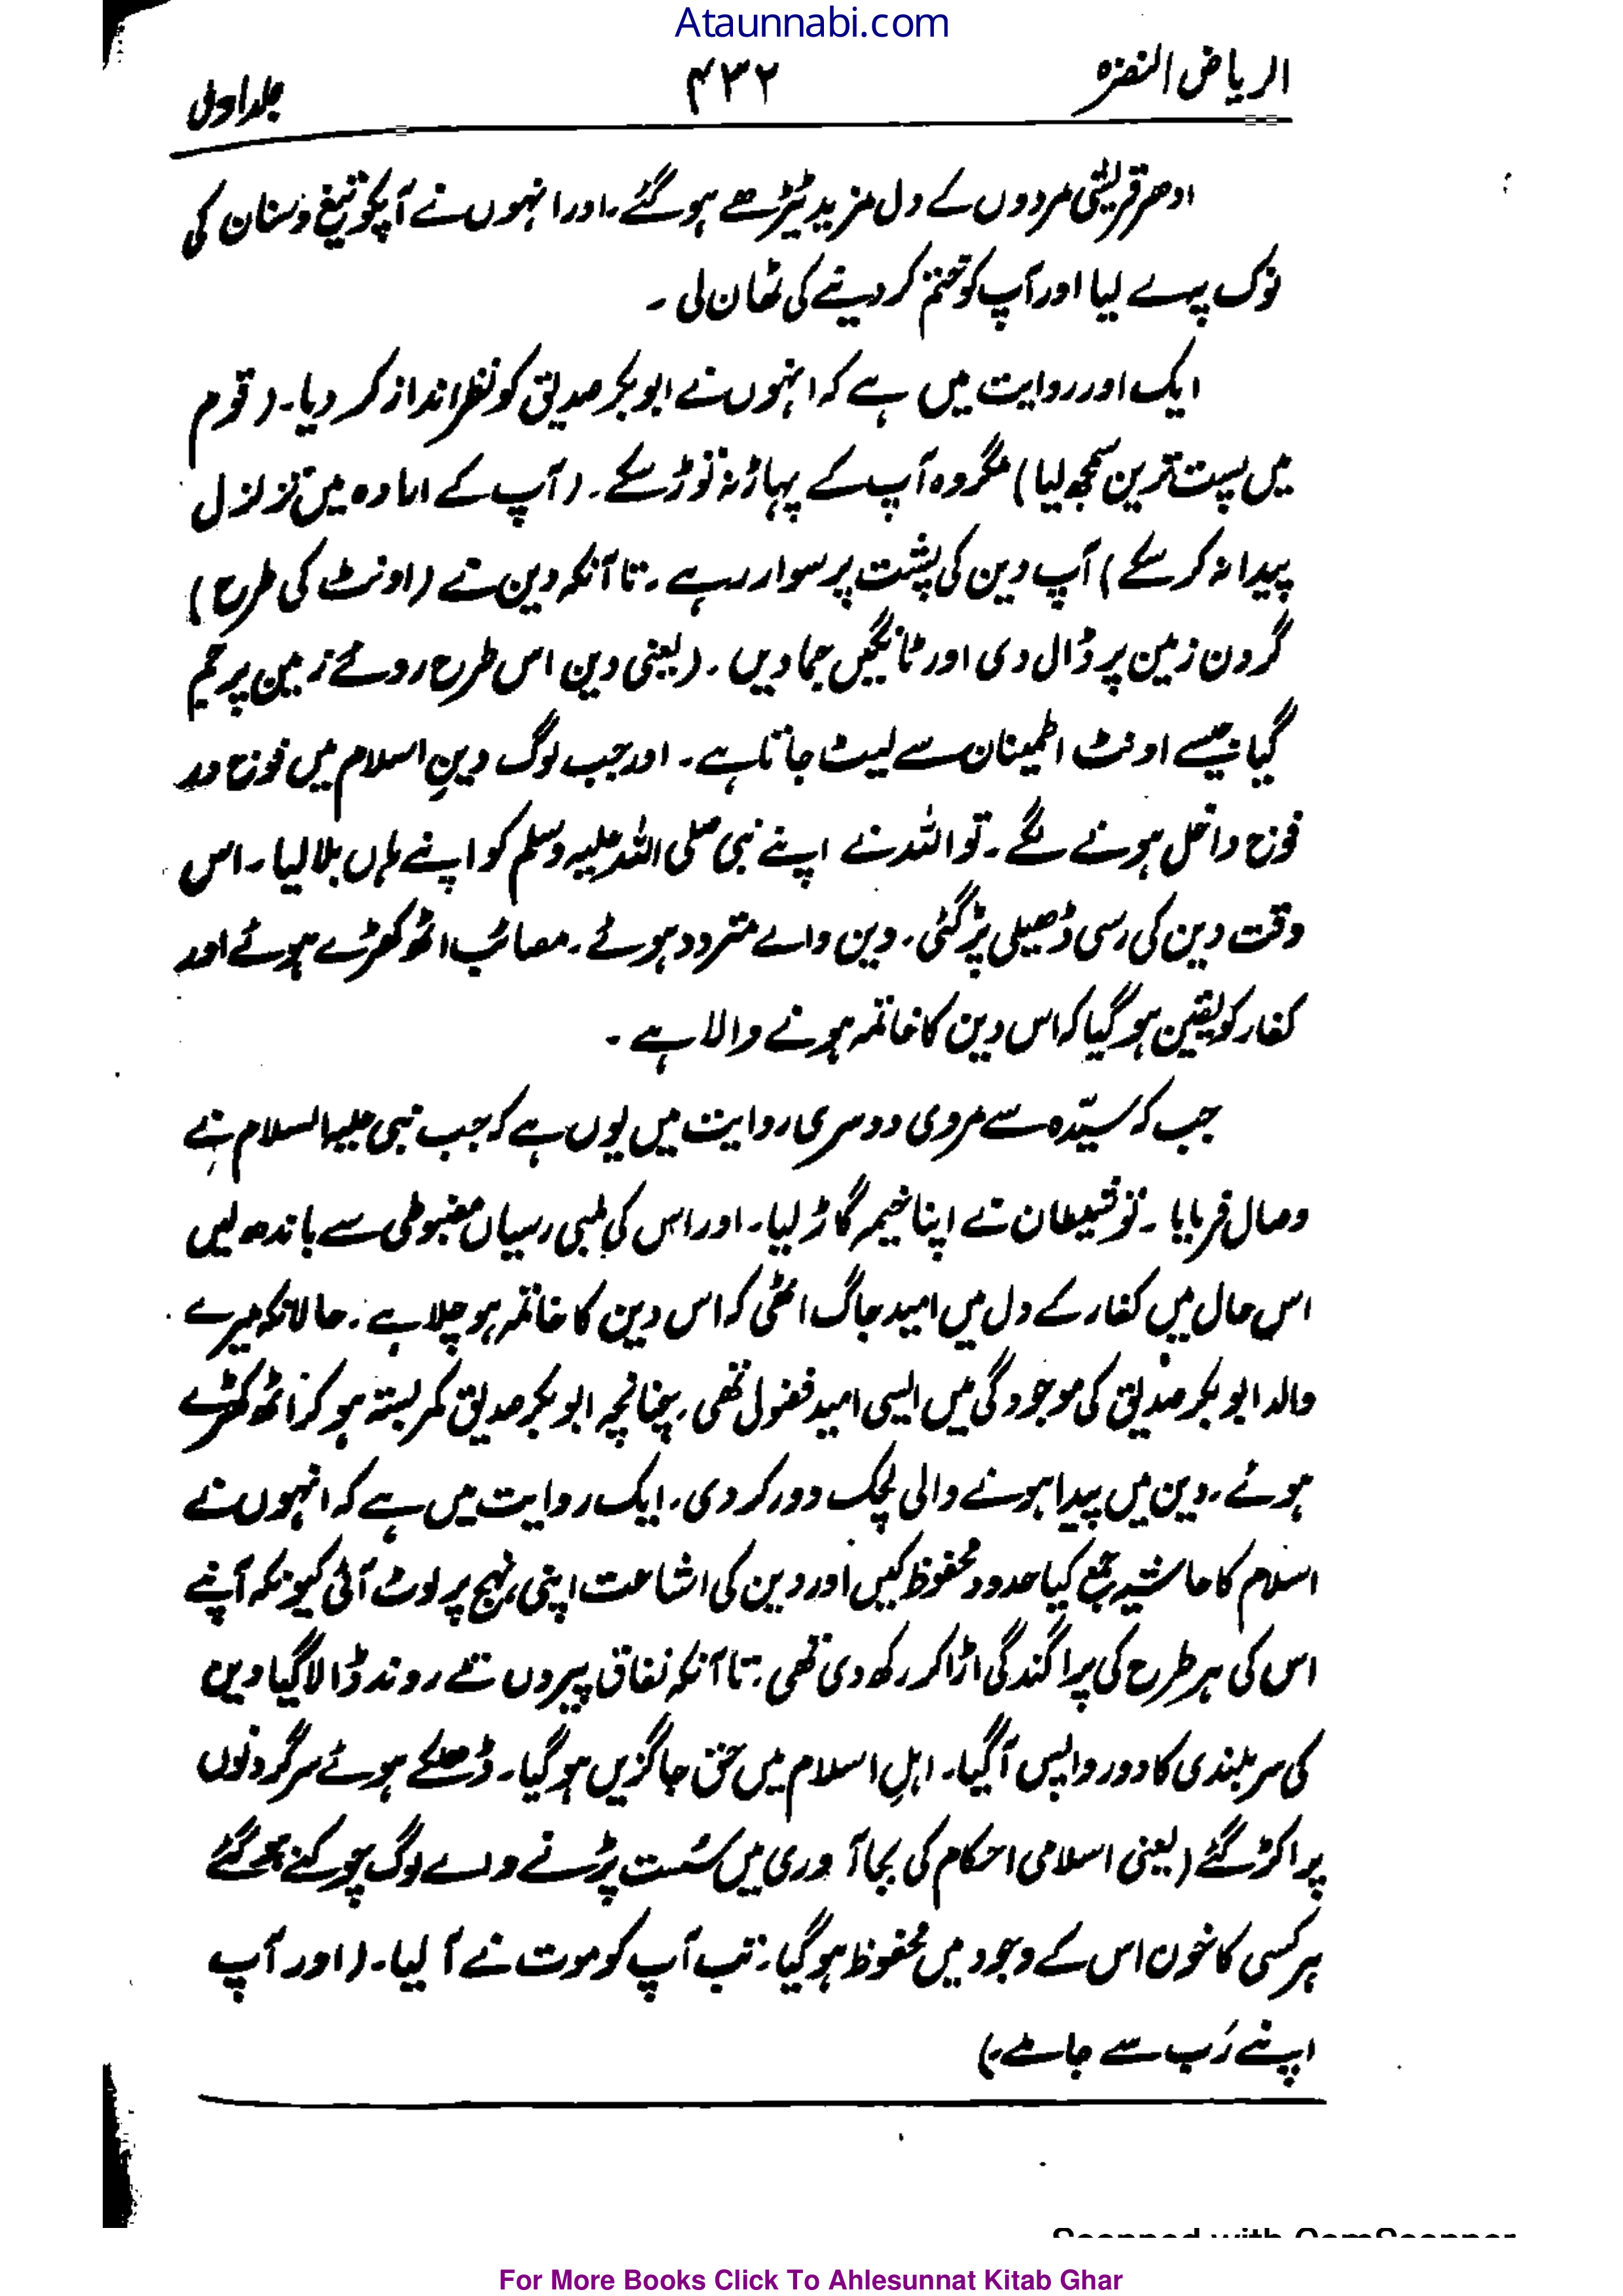 Ataunnabi.com
الریاض النضرہ ۴۳۲ جلد اول
ادھر قریشی مردوں کے دل مزید ٹیڑھے ہو گئے۔ اور انہوں نے آپکو تیغ و سنان کی
نوک پہ لے لیا اور آپ کو ختم کر دینے کی ٹھان لی ۔
ایک اور روایت میں ہے کہ انہوں نے ابو بکر صدیق کو نظر انداز کر دیا۔ (قوم
میں پست ترین سمجھ لیا) مگر وہ آپ کے پہاڑ نہ توڑ سکے۔ (آپ کے ارادہ میں تزلزل
پیدا نہ کر سکے) آپ دین کی پشت پر سوار رہے ۔ تا آنکہ دین نے (اونٹ کی طرح)
گردن زمین پر ڈال دی اور ٹانگیں جما دیں ۔ (یعنی دین اس طرح روئے زمین پر جم
گیا جیسے اونٹ اطمینان سے لیٹ جاتا ہے۔ اور جب لوگ دینِ اسلام میں فوج در
فوج داخل ہونے لگے ۔ تو اللہ نے اپنے نبی صلی اللہ علیہ وسلم کو اپنے ہاں بلا لیا۔ اس
وقت دین کی رسی ڈھیلی پڑ گئی۔ دین والے متردد ہوئے ۔ مصائب اٹھ کھڑے ہوئے اور
کفار کو یقین ہو گیا کہ اس دین کا خاتمہ ہونے والا ہے ۔
جب کہ سیّدہ سے مروی دوسری روایت میں یوں ہے کہ جب نبی علیہ السلام نے
وصال فرمایا ۔ تو شیطان نے اپنا خیمہ گاڑ لیا۔ اور اس کی لمبی رسیاں مضبوطی سے باندھ لیں
اس حال میں کفار کے دل میں امید جاگ اٹھی کہ اس دین کا خاتمہ ہو چلا ہے۔ حالانکہ میرے
والد ابو بکر صدیق کی موجودگی میں ایسی امید فضول تھی۔ چنانچہ ابو بکر صدیق کمر بستہ ہو کر اٹھ کھڑے
ہوئے۔ دین میں پیدا ہونے والی لچک دور کر دی۔ ایک روایت میں ہے کہ انہوں نے
اسلام کا حاشیہ جمع کیا حدود محفوظ کیں اور دین کی اشاعت اپنی نہج پر لوٹ آئی کیونکہ آپنے
اس کی ہر طرح کی پراگندگی اڑا کر رکھ دی تھی۔ تا آنکہ نفاق پیروں تلے روند ڈالا گیا دین
کی سربلندی کا دور واپس آگیا۔ اہلِ اسلام میں حق جاگزیں ہو گیا۔ ڈھلکے ہوئے سر گردنوں
پر اکڑ گئے (یعنی اسلامی احکام کی بجا آوری میں سُست پڑنے والے لوگ چوکنے ہو گئے
ہر کسی کا خون اس کے وجود میں محفوظ ہو گیا۔ تب آپ کو موت نے آ لیا۔ (اور آپ
اپنے رَب سے جا ملے۔)
Scanned with CamScanner
For More Books Click To Ahlesunnat Kitab Ghar